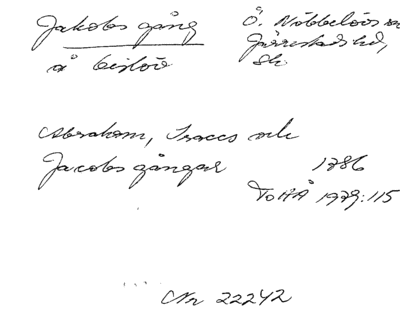 Jakobs gång
Ö. Nöbbelövs
Järrestads hd,
Sk.
å
Abraham, Isaccs och
Jacobs gångar 1786
ToHÅ 1979:115
Nr 22242